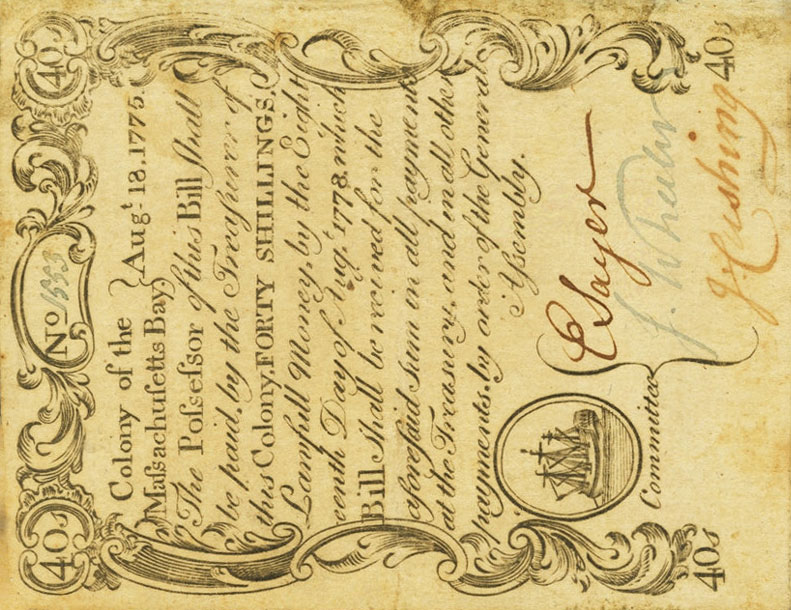 40s 40s
No 1553
Colony of the
Maſsachuſetts Bay } Augt. 18. 1775.
The Poſseſsor of this Bill Shall
be paid, by the Treaſurer of
this Colony, FORTY SHILLINGS.
Lawfull Money, by the Eight
eenth Day of Augt. 1778. which
Bill Shall be rceived for the
aforeſaid Sum in all payments
at the Treaſury, and in all other
payments. by order of the General
Aſsembly.
E Sayer
J. Wheeler
J. Cushing
Committee
40s 40s